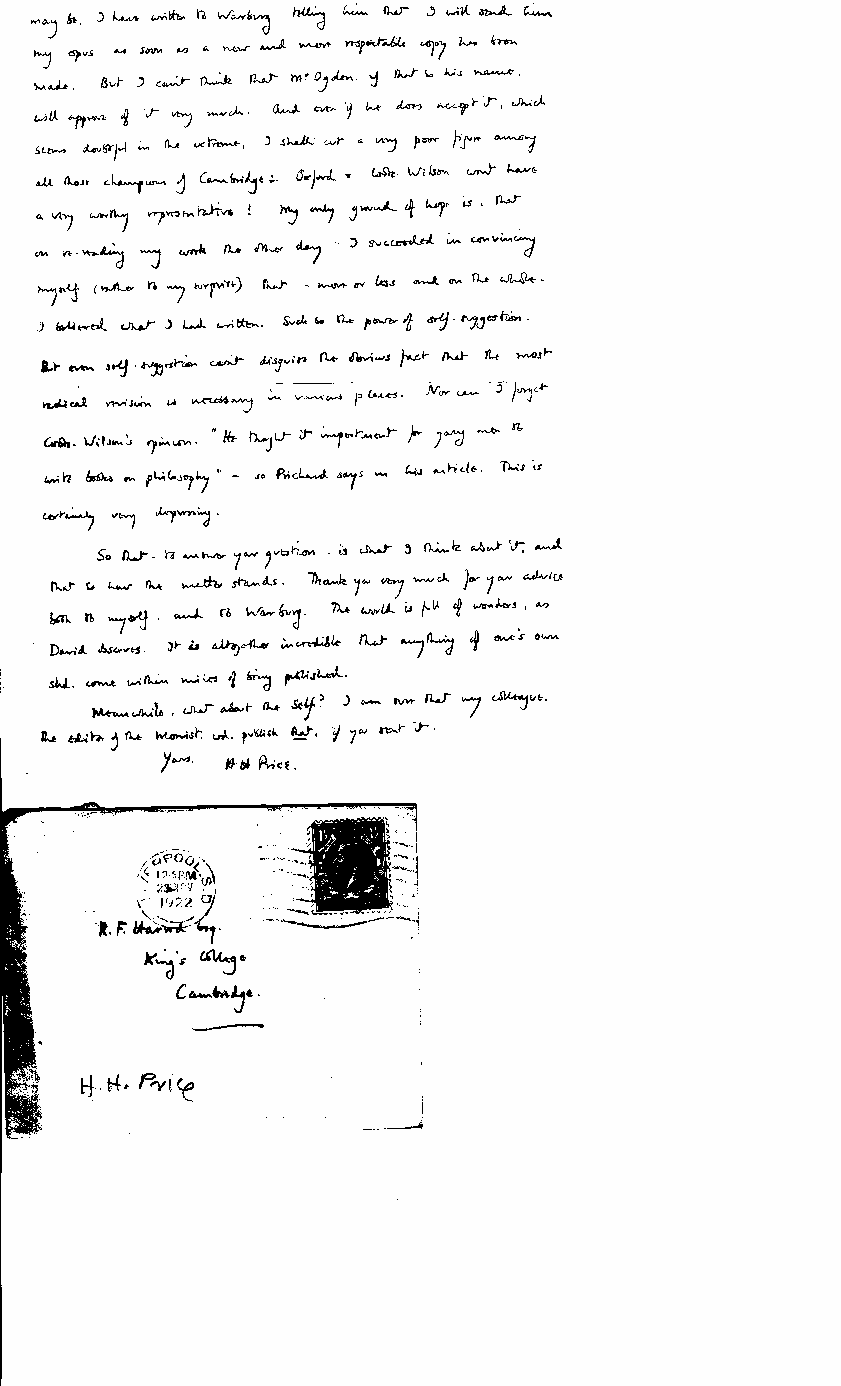 may be. I have written to Warburg telling him that I will send him
my opus as soon as a new and more respectable copy has been
made. But I can't think that Mr Ogden, if that is his name,
will approve of it very much. And even if he does accept it, which
seems doubtful in the extreme, I shall cut a very poor figure among
all those champions of Cambridge: Oxford & Cook Wilson wont have
a very worthy representative! My only ground of hope is, that
on re-reading my work the other day I succeeded in convincing
myself (rather to my surprise) that - more or less and on the whole -
I believed what I had written. Such is the power of self-suggestion.
But even self-suggestion can't disguise the obvious fact that the most
radical revision is necessary in various places. Nor can I forget
Cook Wilson's opinion. "He thought it impertinent for young men to
write books on philosophy" - so Prichard says in his article. This is
certainly very depressing.
So that - to answer your question - is what I think about it, and
that is how the matter stands. Thank you very much for your advice
both to myself, and to Warburg. The world is full of wonders, as
David observes. It is altogether incredible that anything of one's own
shd. come within miles of being published.
Meanwhile, what about the Self? I am sure that my colleague,
the editor of the Monist, wd. publish that, if you sent it.
Yours,
H H Price.
LIVERPOOL
PM
1922
R. F. Harrod Esq.
King's College
Cambridge.
H. H. Price